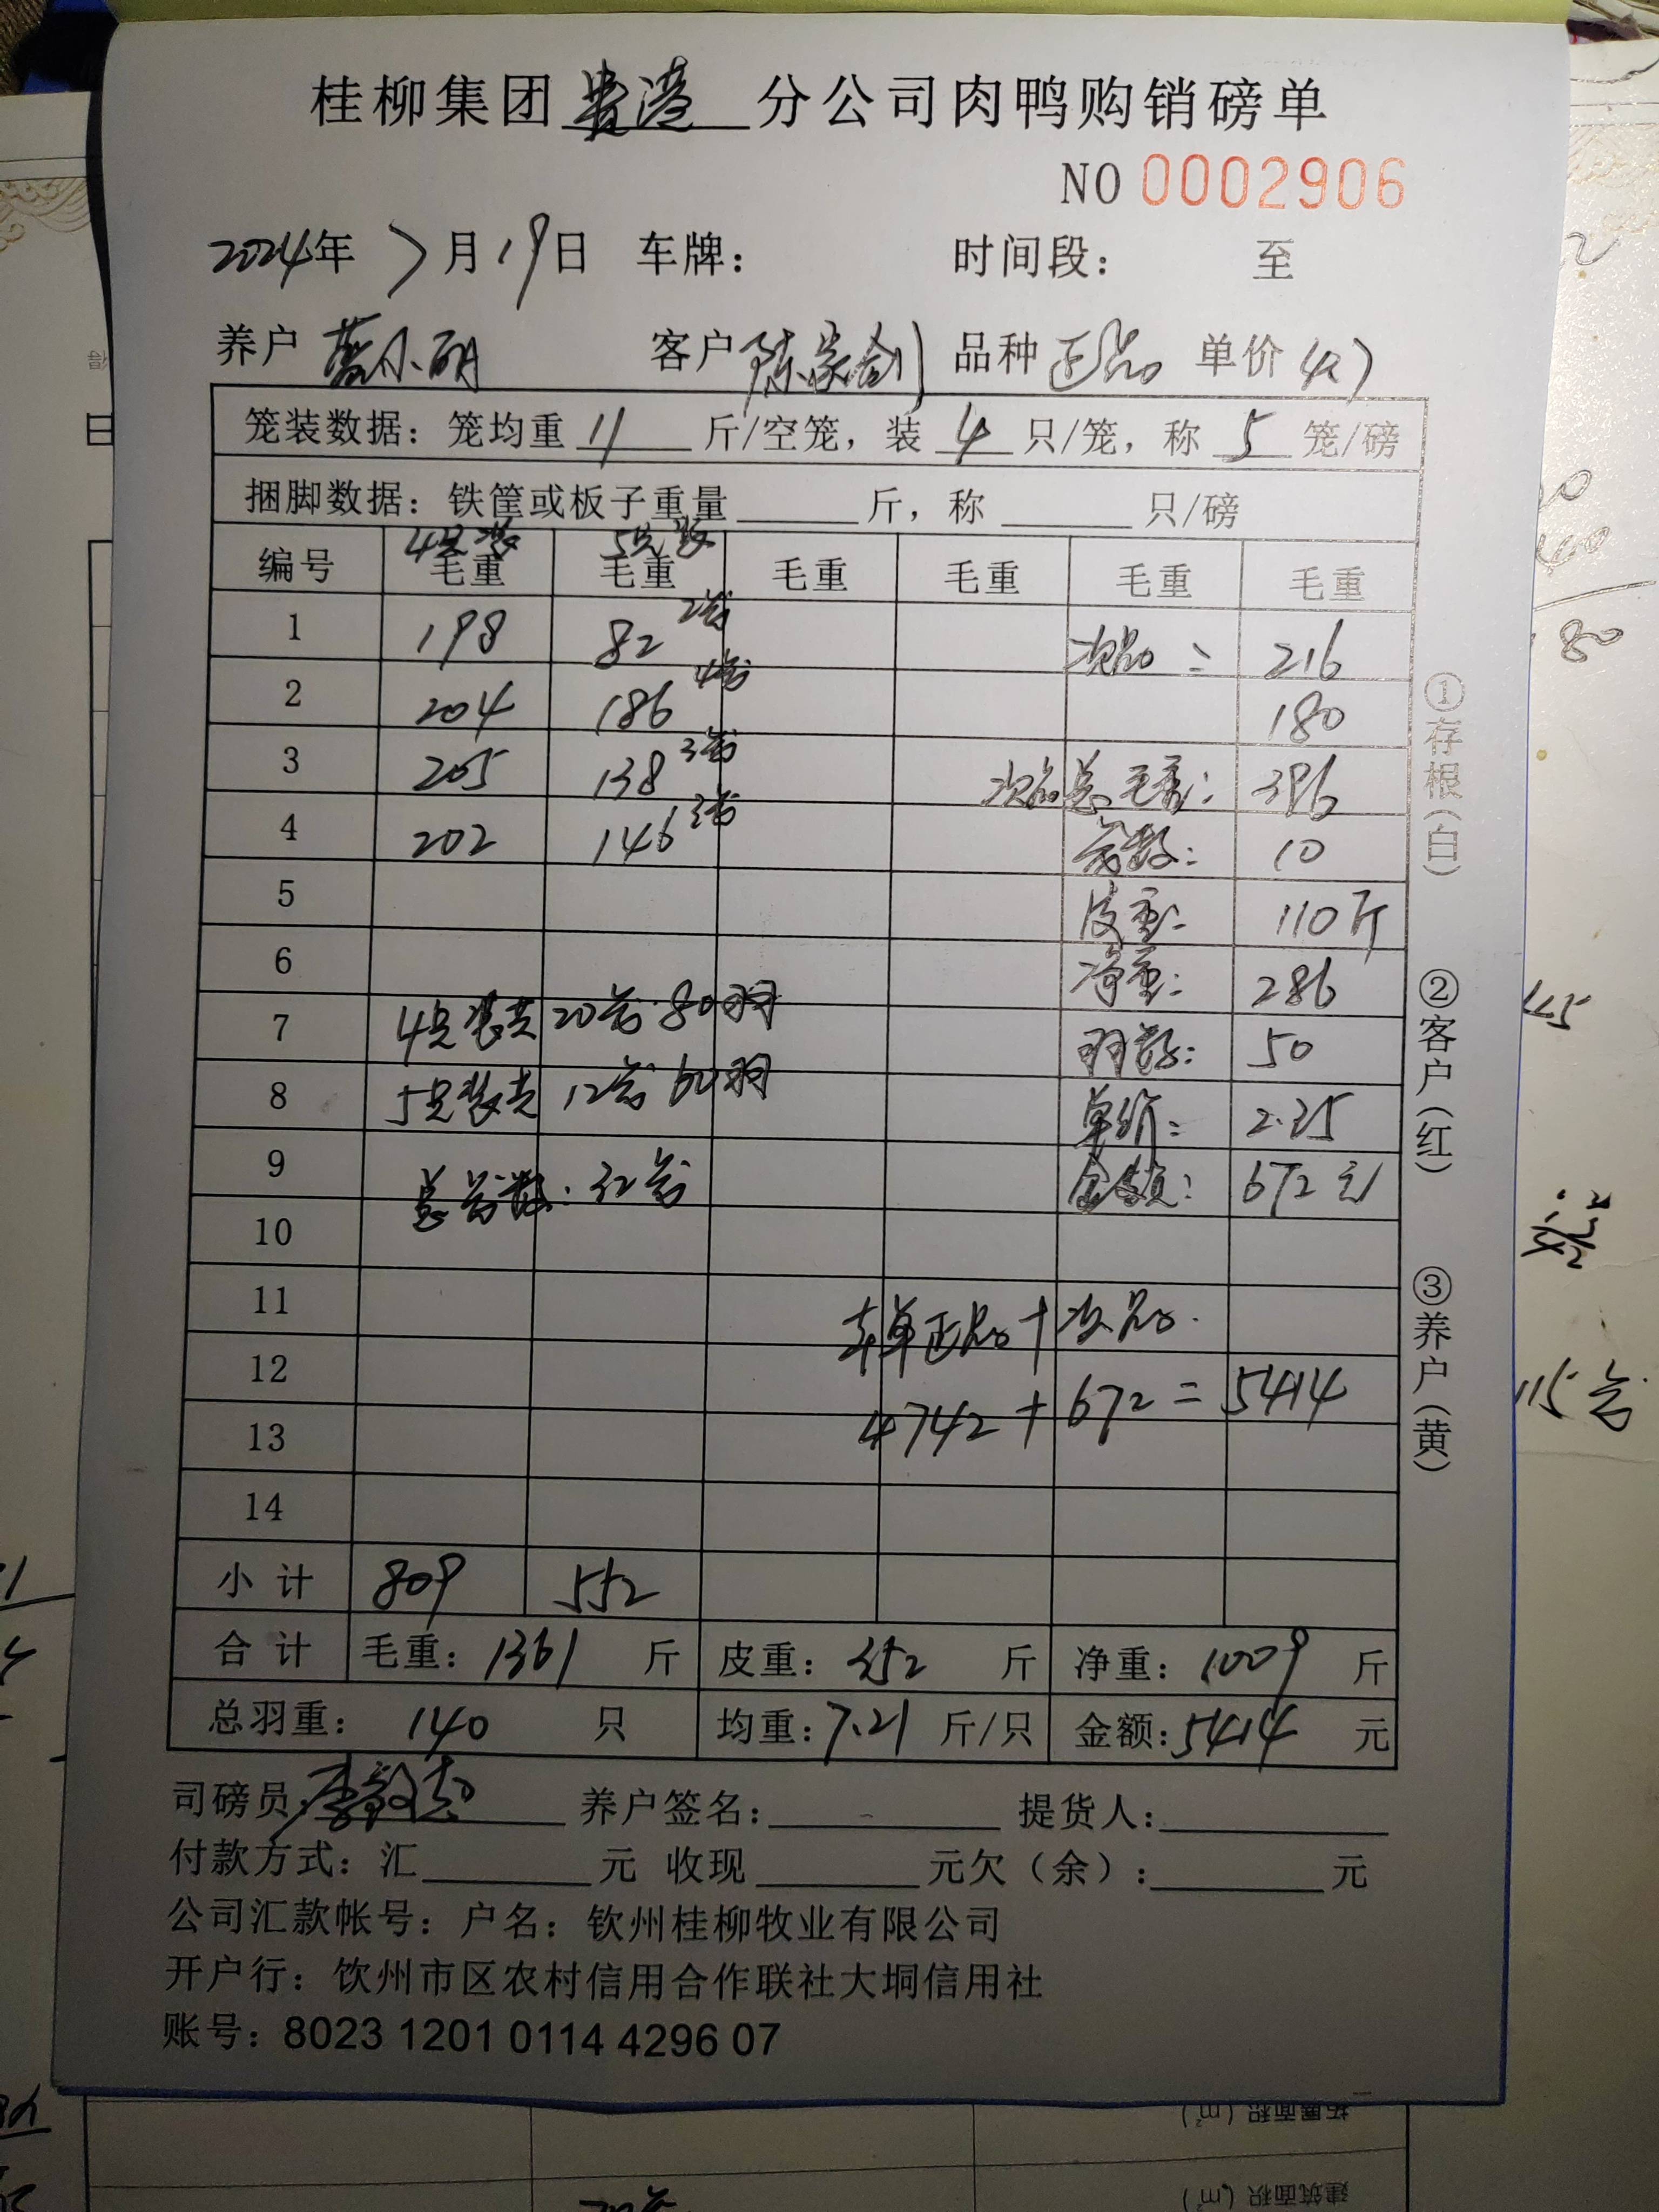 桂柳集团贵港分公司肉鸭购销磅单
NO 0002906
2024年 7月19日 车牌： 时间段： 至
养户 小明 客户 陈 品种 正品 单价 4.7
笼装数据：笼均重 11 斤/空笼，装 4 只/笼，称 5 笼/磅
捆脚数据：铁筐或板子重量 斤，称 只/磅
4只装 5只装
编号 毛重 毛重 毛重 毛重 毛重 毛重
1 198 82 2笼 次品： 216
2 204 186 4笼 180
3 205 138 3笼 次品总毛重： 396
4 202 146 3笼 笼数： 10
5 皮重： 110斤
6 净重： 286
7 4只装共20笼.80羽 羽数： 50
8 5只装共12笼60羽 单价： 2.35
9 总笼数：32笼 金额： 672元
10
11 本单正品+次品.
12 4742+672=5414
13
14
小计 809 552
合计 毛重：1361 斤 皮重：352 斤 净重：1009 斤
总羽重：140 只 均重：7.21 斤/只 金额：5414 元
司磅员：李 养户签名： 提货人：
付款方式：汇 元 收现 元欠（余）： 元
公司汇款帐号：户名：钦州桂柳牧业有限公司
开户行：钦州市区农村信用合作联社大垌信用社
账号：8023 1201 0114 4296 07
①存根（白）
②客户（红）
③养户（黄）
80
115笼
拓展面积（m²）
建筑面积（m²）